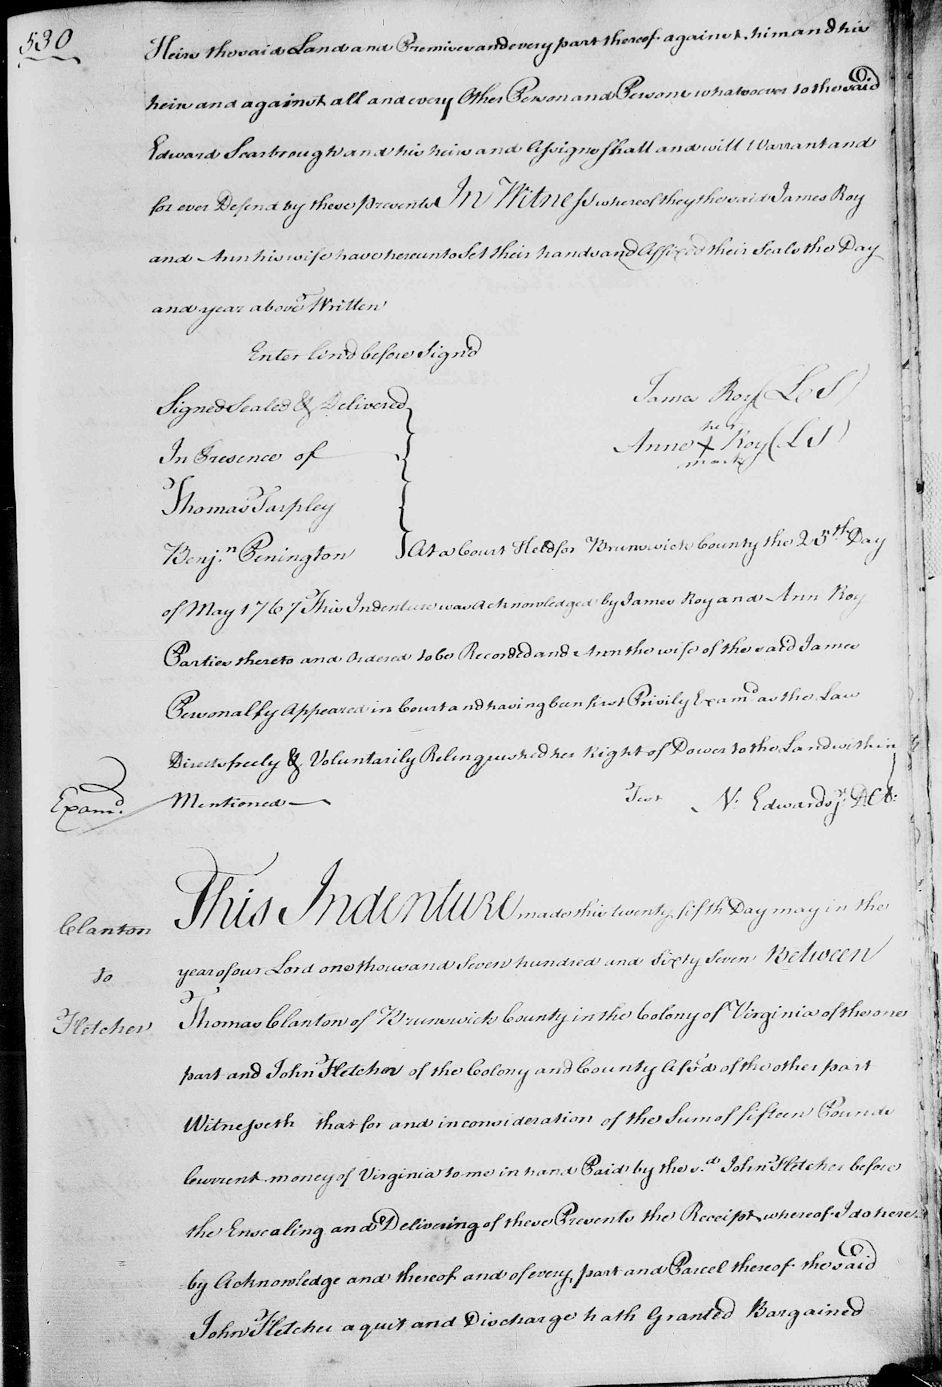 530
Heirs the said Land and Premises and every part thereof against him and his
heirs and against all and every Other Person and Persons whatsoever to the said
Edward Scarbrough and his heirs and Assigns Shall and will Warrant and
for ever Defend by these presents In Witness whereof they the said James Roy
and Ann his wife have hereunto Set their hands and Affixed their Seals the Day
and year above Written
Enter lin'd before Sign'd
Signed Sealed & Delivered
James Roy (LS)
In Presence of
her
Anne X Roy (LS)
mark
Thomas Tarpley
Benj.n Penington } At a Court Held for Brunswick County the 25th Day
of May 1767 This Indenture was Acknowledged by James Roy and Ann Roy
Parties thereto and Ordered to be Recorded and Ann the wife of the said James
Personally Appeared in Court and having been first Privily Exam'd as the Law
Directs freely & Voluntarily Relinquished her Right of Dower to the Land within
Exam'd.
Mentioned
Test N. Edwards jr. DCt:
Clanton
to
Fletcher
This Indenture made this twenty fifth Day may in the
year of our Lord one thousand Seven hundred and Sixty Seven Between
Thomas Clanton of Brunswick County in the Colony of Virginia of the one
part and John Fletcher of the Colony and County Afs'd of the other part
Witnesseth that for and in consideration of the Sum of fifteen Pounds
Current money of Virginia to me in hand Paid by the s.d John Fletcher before
the Ensealing and Delivering of these Presents the Receipt whereof I do here
by Acknowledge and thereof and of every part and Parcel thereof the said
John Fletcher aquit and Discharge hath Granted Bargained